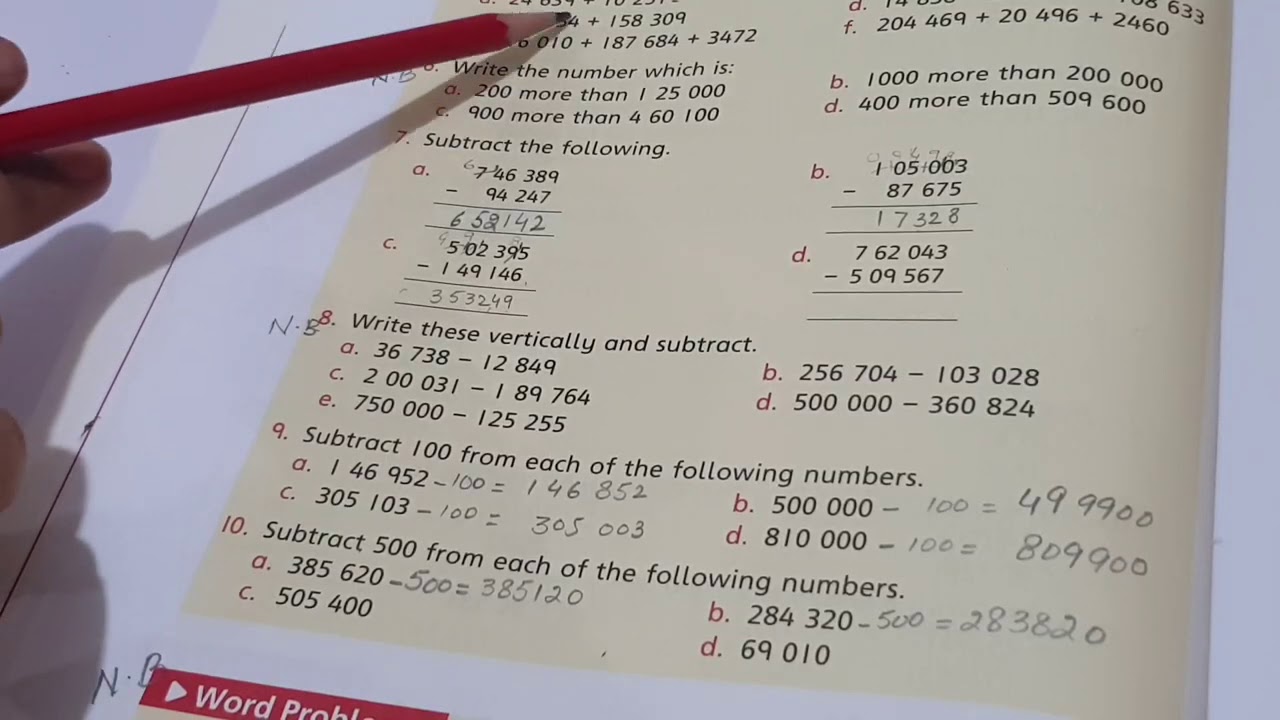 24 639 +
d. 14
633
34 + 158 309
f. 204 469 + 20 496 + 2460
6 010 + 187 684 + 3472
N.B
Write the number which is:
a. 200 more than 1 25 000
b. 1000 more than 200 000
c. 900 more than 4 60 100
d. 400 more than 509 600
7. Subtract the following.
a. 746 389
− 94 247
652142
b. 1 05 003
− 87 675
17328
c. 502 395
− 1 49 146
353249
d. 7 62 043
− 5 09 567
N.B 8. Write these vertically and subtract.
a. 36 738 − 12 849
b. 256 704 − 103 028
c. 2 00 031 − 1 89 764
d. 500 000 − 360 824
e. 750 000 − 125 255
9. Subtract 100 from each of the following numbers.
a. 1 46 952 - 100 = 146 852
b. 500 000 - 100 = 499900
c. 305 103 - 100 = 305 003
d. 810 000 - 100 = 809900
10. Subtract 500 from each of the following numbers.
a. 385 620 - 500 = 385120
b. 284 320 - 500 = 283820
c. 505 400
d. 69 010
N.B
Word